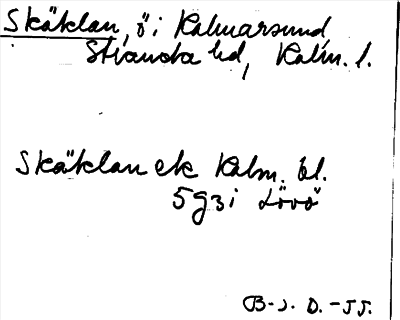 Skäklan, ö i Kalmarsund,
Stranda hd, Kalm. l.
Skäklan ek Kalm. bl.
5g3i Lövö
B-J. D.-JJ.